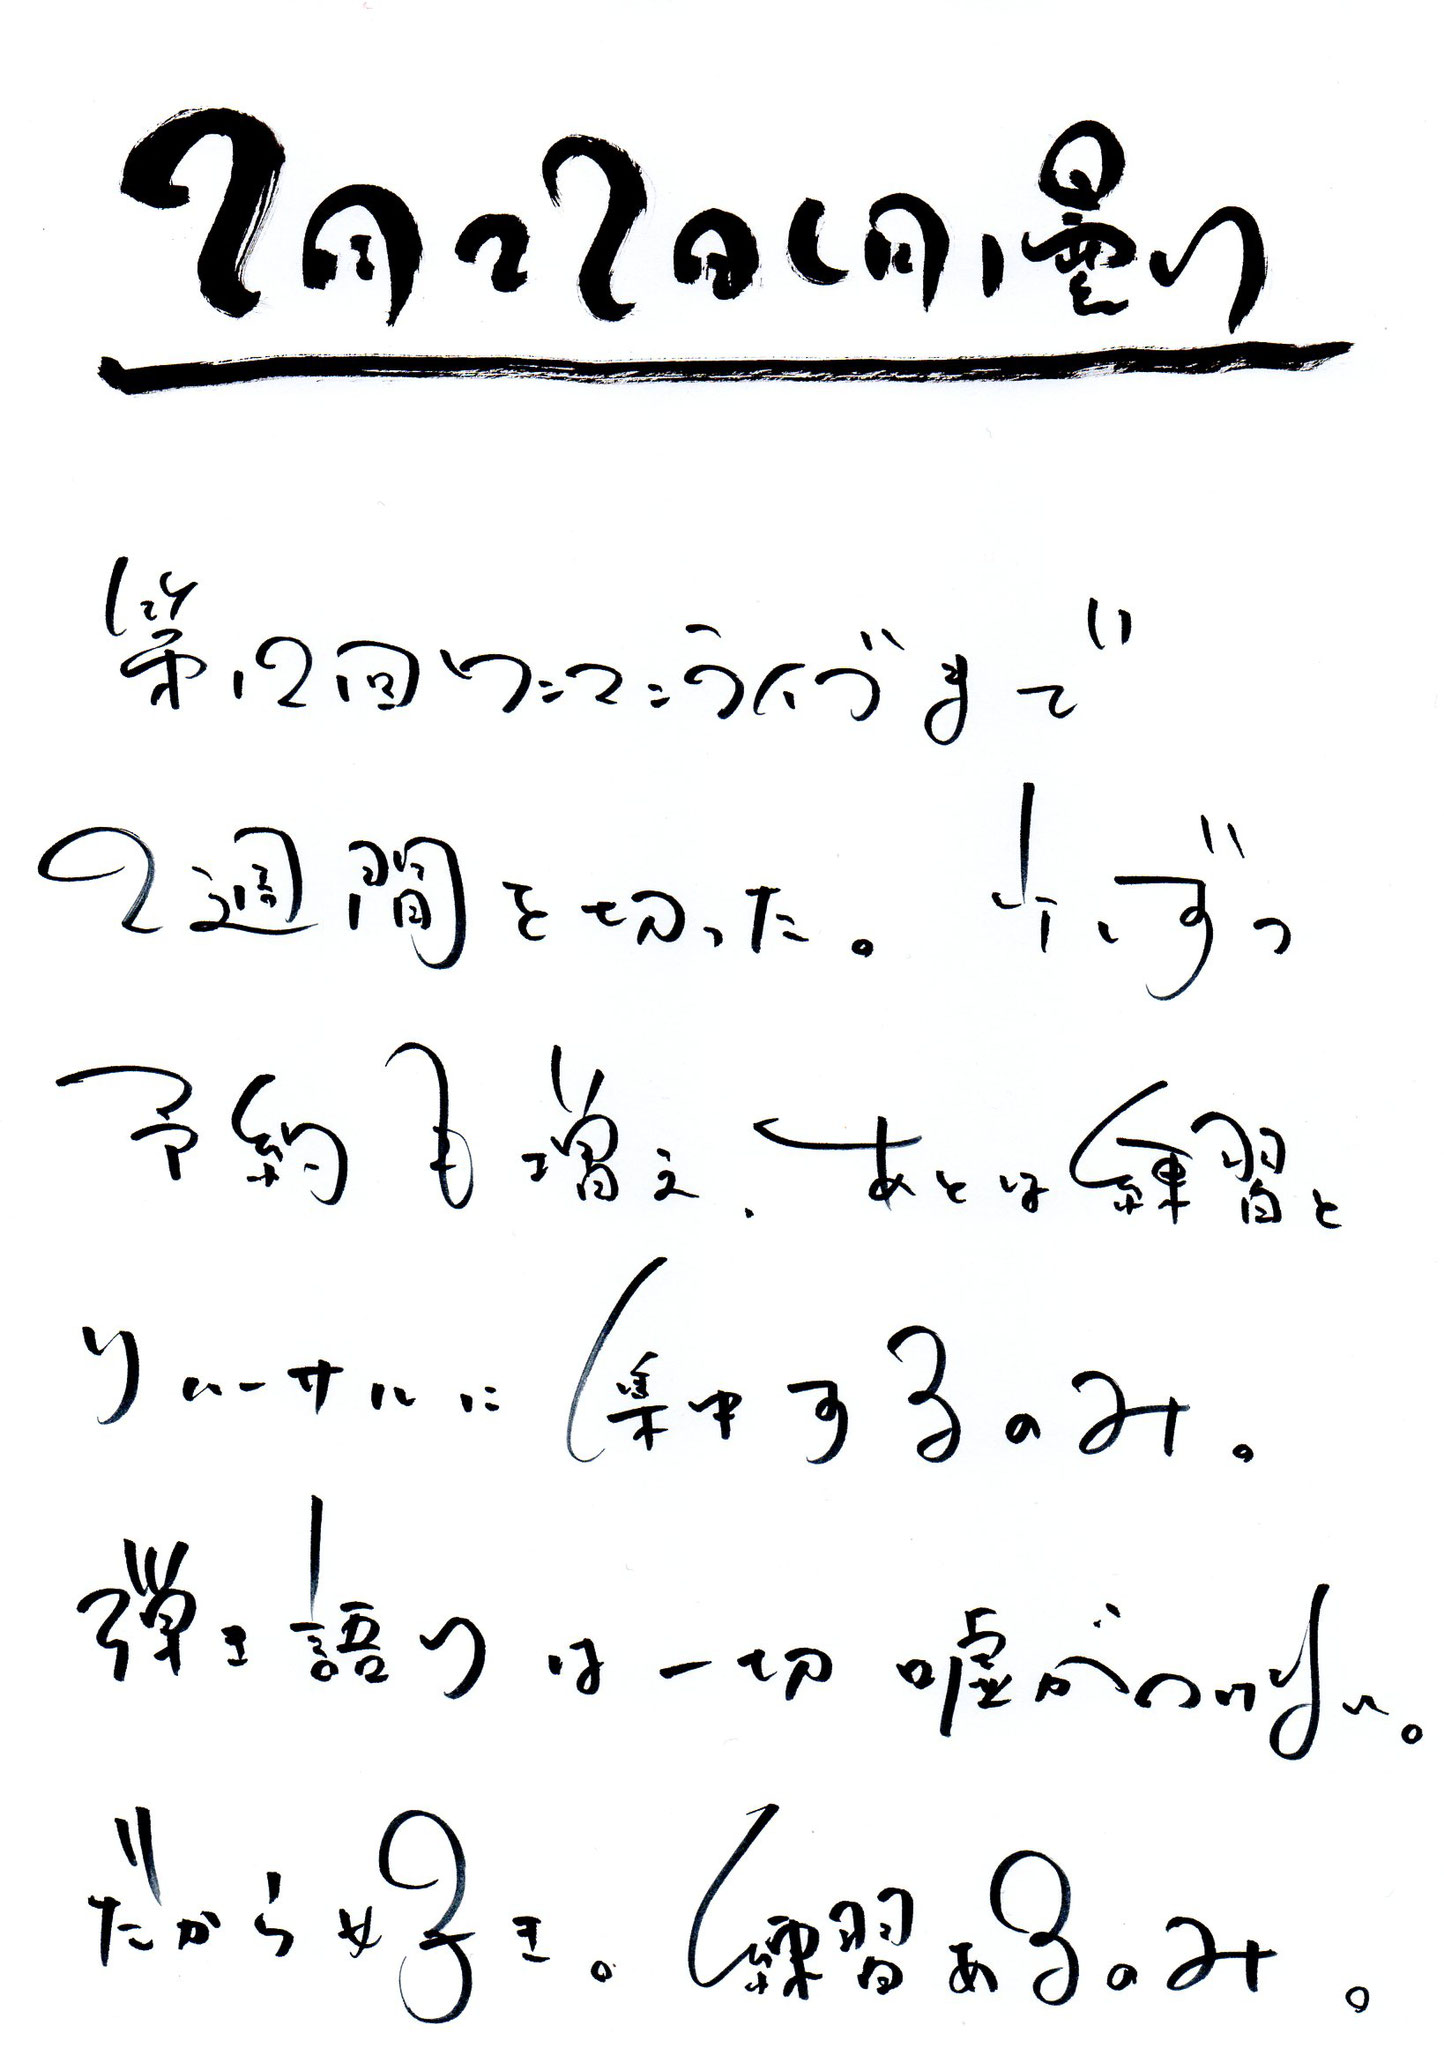 7月27日(月)曇り
第12回ワンマンライブまで
2週間を切った。少しずつ
予約も増え、あとは練習と
リハーサルに集中するのみ。
弾き語りは一切嘘がつけない。
だから好き。練習あるのみ。